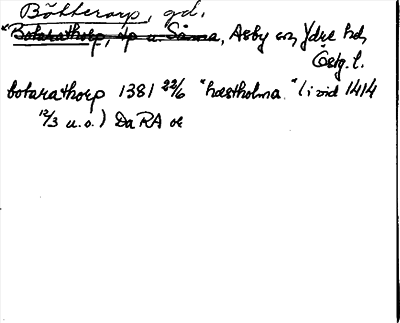 Böttterarp, gd.
"Botarathorp, tp u. Sånna, Asby sn, Ydre hd,
Östg. l.
botarathorp 1381 22/6 "hæstholma." (i vid 1414
12/3 u.o.) Da RA or